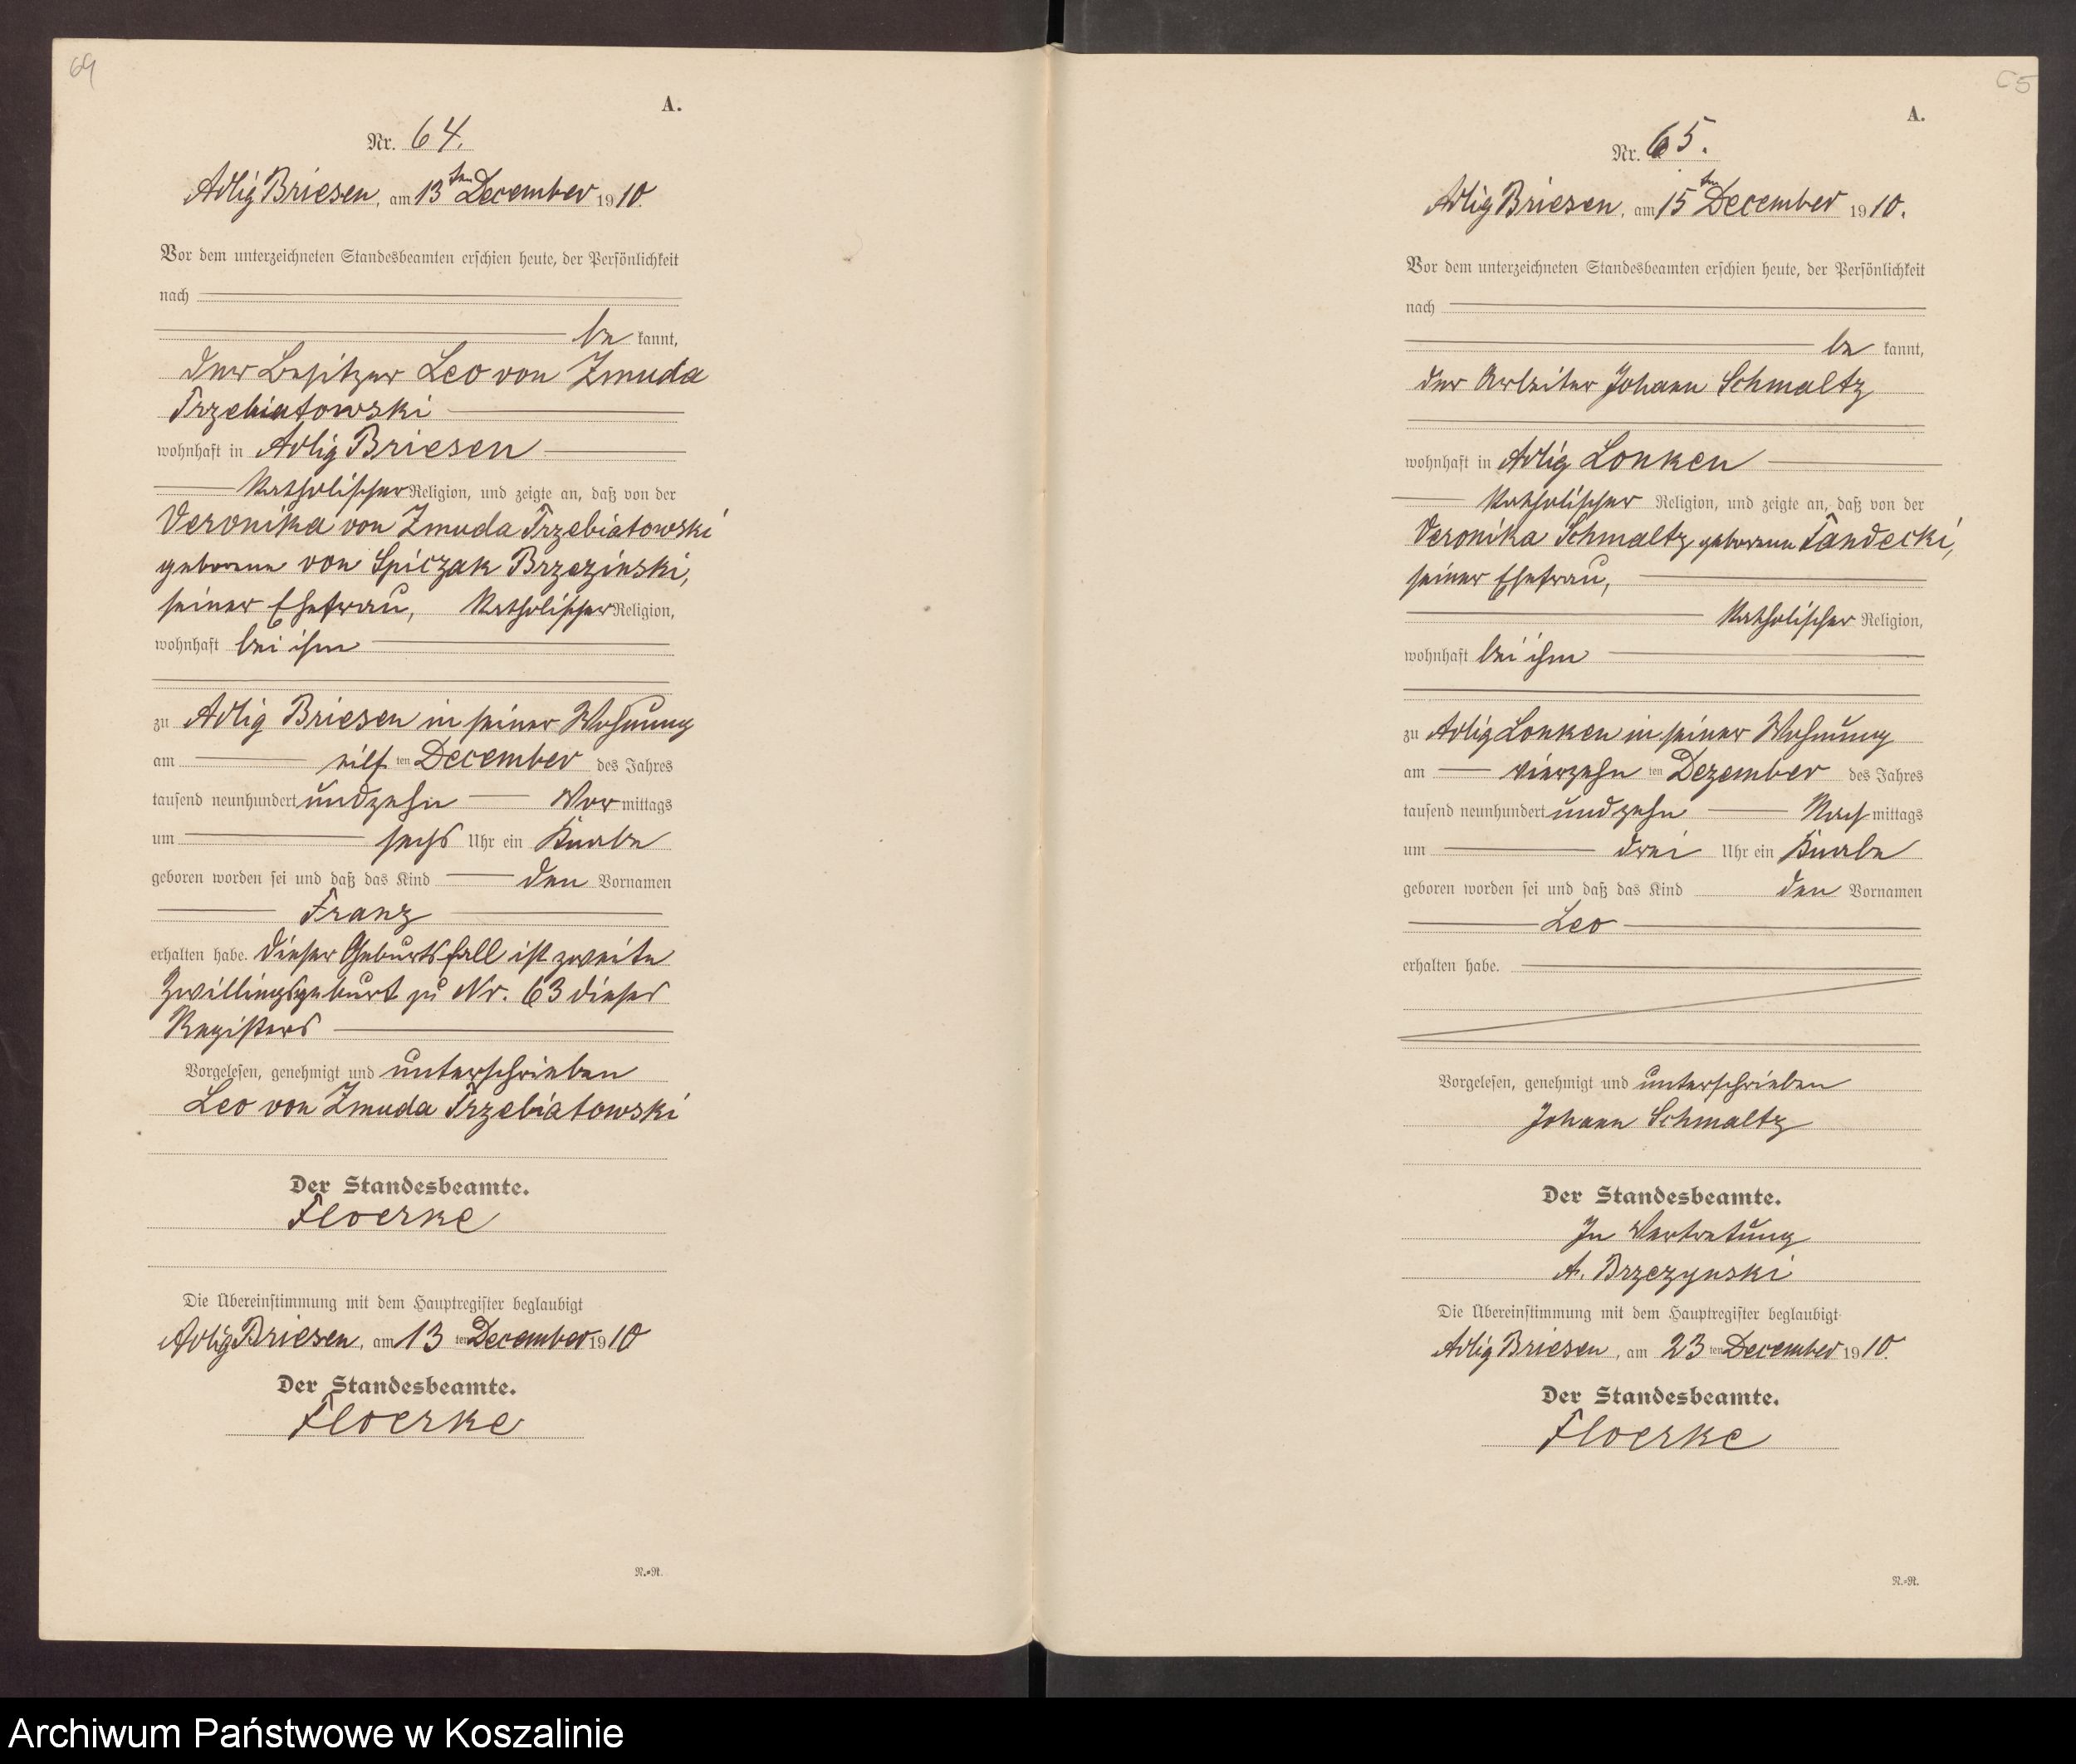 64
A.
Nr. 64.
Adlig Briesen, am 13ten December 1910.
Vor dem unterzeichneten Standesbeamten erschien heute, der Persönlichkeit
nach
be kannt,
der Besitzer Leo von Zmuda
Trzebiatowski
wohnhaft in Adlig Briesen
katholischer Religion, und zeigte an, daß von der
Veronika von Zmuda Trzebiatowski
geborene von Spiczak Brzezinski,
seiner Ehefrau, katholischer Religion,
wohnhaft bei ihm
zu Adlig Briesen in seiner Wohnung
am eilf ten December des Jahres
tausend neunhundert undzehn Vor mittags
um sechs Uhr ein Knabe
geboren worden sei und daß das Kind den Vornamen
Franz
erhalten habe. Dieser Geburtsfall ist zweite
Zwillingsgeburt zu Nr. 63 dieses
Registers
Vorgelesen, genehmigt und unterschrieben
Leo von Zmuda Trzebiatowski
Der Standesbeamte.
Floerke
Die Übereinstimmung mit dem Hauptregister beglaubigt
Adlig Briesen, am 13 ten December 1910
Der Standesbeamte.
Floerke
N.=R.
65
A.
Nr. 65.
Adlig Briesen, am 15ten December 1910.
Vor dem unterzeichneten Standesbeamten erschien heute, der Persönlichkeit
nach
be kannt,
der Arbeiter Johann Schmaltz
wohnhaft in Adlig Lonken
katholischer Religion, und zeigte an, daß von der
Veronika Schmaltz geborene Tandecki,
seiner Ehefrau,
katholischer Religion,
wohnhaft bei ihm
zu Adlig Lonken in seiner Wohnung
am vierzehn ten Dezember des Jahres
tausend neunhundert undzehn Nach mittags
um drei Uhr ein Knabe
geboren worden sei und daß das Kind den Vornamen
Leo
erhalten habe.
Vorgelesen, genehmigt und unterschrieben
Johann Schmaltz
Der Standesbeamte.
In Vertretung
A. Brzezynski
Die Übereinstimmung mit dem Hauptregister beglaubigt
Adlig Briesen, am 23 ten December 1910.
Der Standesbeamte.
Floerke
N.=R.
Archiwum Państwowe w Koszalinie